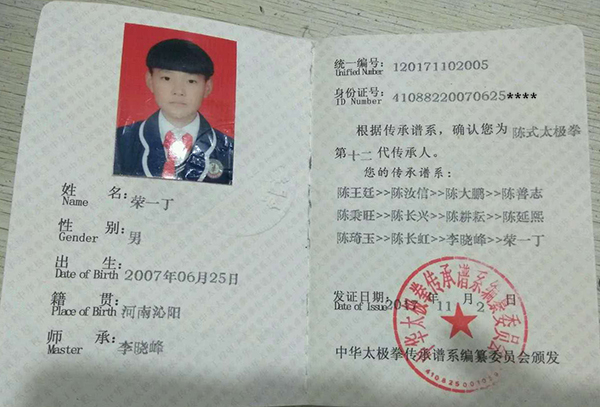 姓 名: 荣一丁
Name
性 别: 男
Gender
出 生: 2007年06月25日
Date of Birth
籍 贯: 河南沁阳
Place of Birth
师 承: 李晓峰
Master
统一编号: 120171102005
Unified Number
身份证号: 41088220070625****
ID Number
根据传承谱系，确认您为 陈式太极拳
第十二代传承人。
您的传承谱系：
陈王廷>>陈汝信>>陈大鹏>>陈善志
陈秉旺>>陈长兴>>陈耕耘>>陈延熙
陈琦玉>>陈长虹>>李晓峰>>荣一丁
发证日期: 2017 年 11 月 2 日
Date of Issue
中华太极拳传承谱系编纂委员会
中华太极拳传承谱系编纂委员会颁发